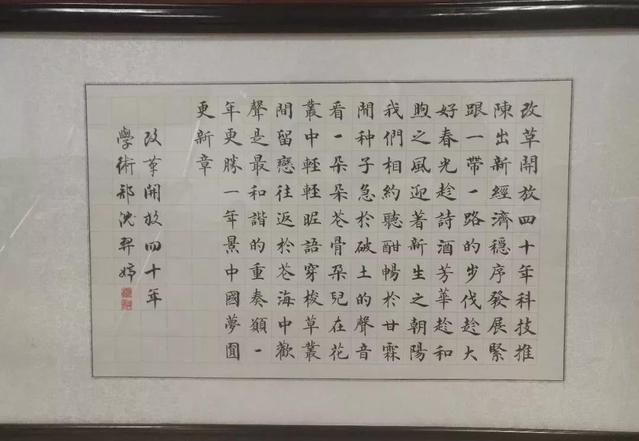 改革開放四十年科技推
陳出新經濟穩序發展緊
跟一帶一路的步伐趁大
好春光趁詩酒芳華趁和
煦之風迎著新生之朝陽
我們相約聽酣暢於甘霖
間种子急於破土的聲音
看一朵朵花骨朵兒在花
叢中輕輕昵語穿梭草叢
間留戀往返於花海中歡
聲是最和諧的重奏願一
年更勝一年景中國夢圓
更新章
改革開放四十年
學術部沈